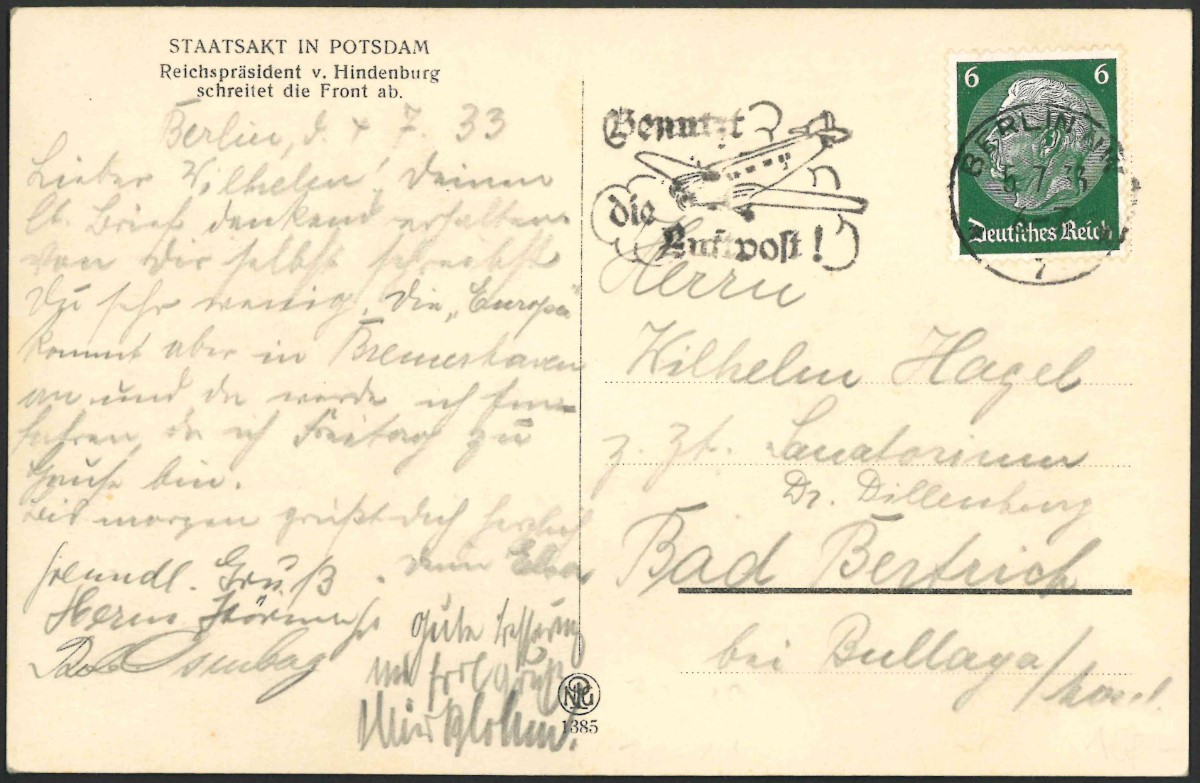 STAATSAKT IN POTSDAM
Reichspräsident v. Hindenburg
schreitet die Front ab.
Berlin, d. 4 7. 33
Lieber Wilhelm! Deinen
lb. Brief dankend erhalten
von Dir selbst schreibst
Du sehr wenig. Die „Europa"
kommt aber in Bremerhaven
an und da werde ich
fahren, da ich Freitag zu
Hause bin.
Bis morgen grüßt Dich herzlich
Dein
freundl. Gruß
Herm.
gute Besserung
und Grüße
Benutzt
die
Luftpost!
6 6
Deutsches Reich
BERLIN NW
5. 7. 33
7
Herrn
Wilhelm Hagel
z. Zt. Sanatorium
Dr. Dillenburg
Bad Bertrich
bei Bullay a/Mosel.
NPG
1385